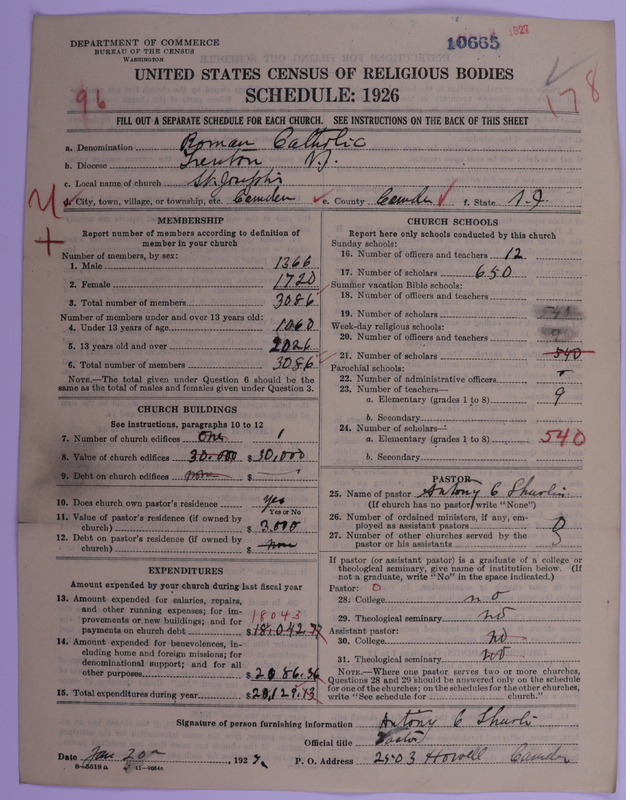 DEPARTMENT OF COMMERCE
BUREAU OF THE CENSUS
WASHINGTON
10665
1927
UNITED STATES CENSUS OF RELIGIOUS BODIES
SCHEDULE: 1926
96
178
FILL OUT A SEPARATE SCHEDULE FOR EACH CHURCH. SEE INSTRUCTIONS ON THE BACK OF THIS SHEET
a. Denomination Roman Catholic
b. Diocese Trenton N.J.
c. Local name of church St. Joseph's
d. City, town, village, or township, etc. Camden e. County Camden f. State N.J.
MEMBERSHIP
Report number of members according to definition of
member in your church
Number of members, by sex:
1. Male 1366
2. Female 1720
3. Total number of members 3086
Number of members under and over 13 years old:
4. Under 13 years of age 1060
5. 13 years old and over 2026
6. Total number of members 3086
NOTE.—The total given under Question 6 should be
same as the total of males and females given under Question 3.
CHURCH BUILDINGS
See instructions, paragraphs 10 to 12
7. Number of church edifices One 1
8. Value of church edifices 30.000 $ 30,000
9. Debt on church edifices none $
10. Does church own pastor's residence yes
Yes or No
11. Value of pastor's residence (if owned by
church) $ 3.000
12. Debt on pastor's residence (if owned by
church) $ none
EXPENDITURES
Amount expended by your church during last fiscal year
13. Amount expended for salaries, repairs,
and other running expenses; for im-
provements or new buildings; and for
payments on church debt $ 18.042.77
18043
14. Amount expended for benevolences, in-
cluding home and foreign missions; for
denominational support; and for all
other purposes $ 2086.36
15. Total expenditures during year $ 20,129.13
CHURCH SCHOOLS
Report here only schools conducted by this church
Sunday schools:
16. Number of officers and teachers 12
17. Number of scholars 650
Summer vacation Bible schools:
18. Number of officers and teachers
19. Number of scholars 540
Week-day religious schools:
20. Number of officers and teachers 9
21. Number of scholars 540
Parochial schools:
22. Number of administrative officers
23. Number of teachers—
a. Elementary (grades 1 to 8) 9
b. Secondary
24. Number of scholars—
a. Elementary (grades 1 to 8) 540
b. Secondary
PASTOR
25. Name of pastor Antony C
(If church has no pastor, write "None")
26. Number of ordained ministers, if any, em-
ployed as assistant pastors 0
27. Number of other churches served by the
pastor or his assistants
If pastor (or assistant pastor) is a graduate of a college or
theological seminary, give name of institution below. (If
not a graduate, write "No" in the space indicated.)
Pastor: 0
28. College no
29. Theological seminary no
Assistant pastor:
30. College no
31. Theological seminary no
NOTE.—Where one pastor serves two or more churches,
Questions 28 and 29 should be answered only on the schedule
for one of the churches; on the schedules for the other churches,
write "See schedule for church."
Signature of person furnishing information Antony C
Official title Pastor
Date Jan 20, 1927 P. O. Address 2503 Howell Camden
8—5518a 11—9564a